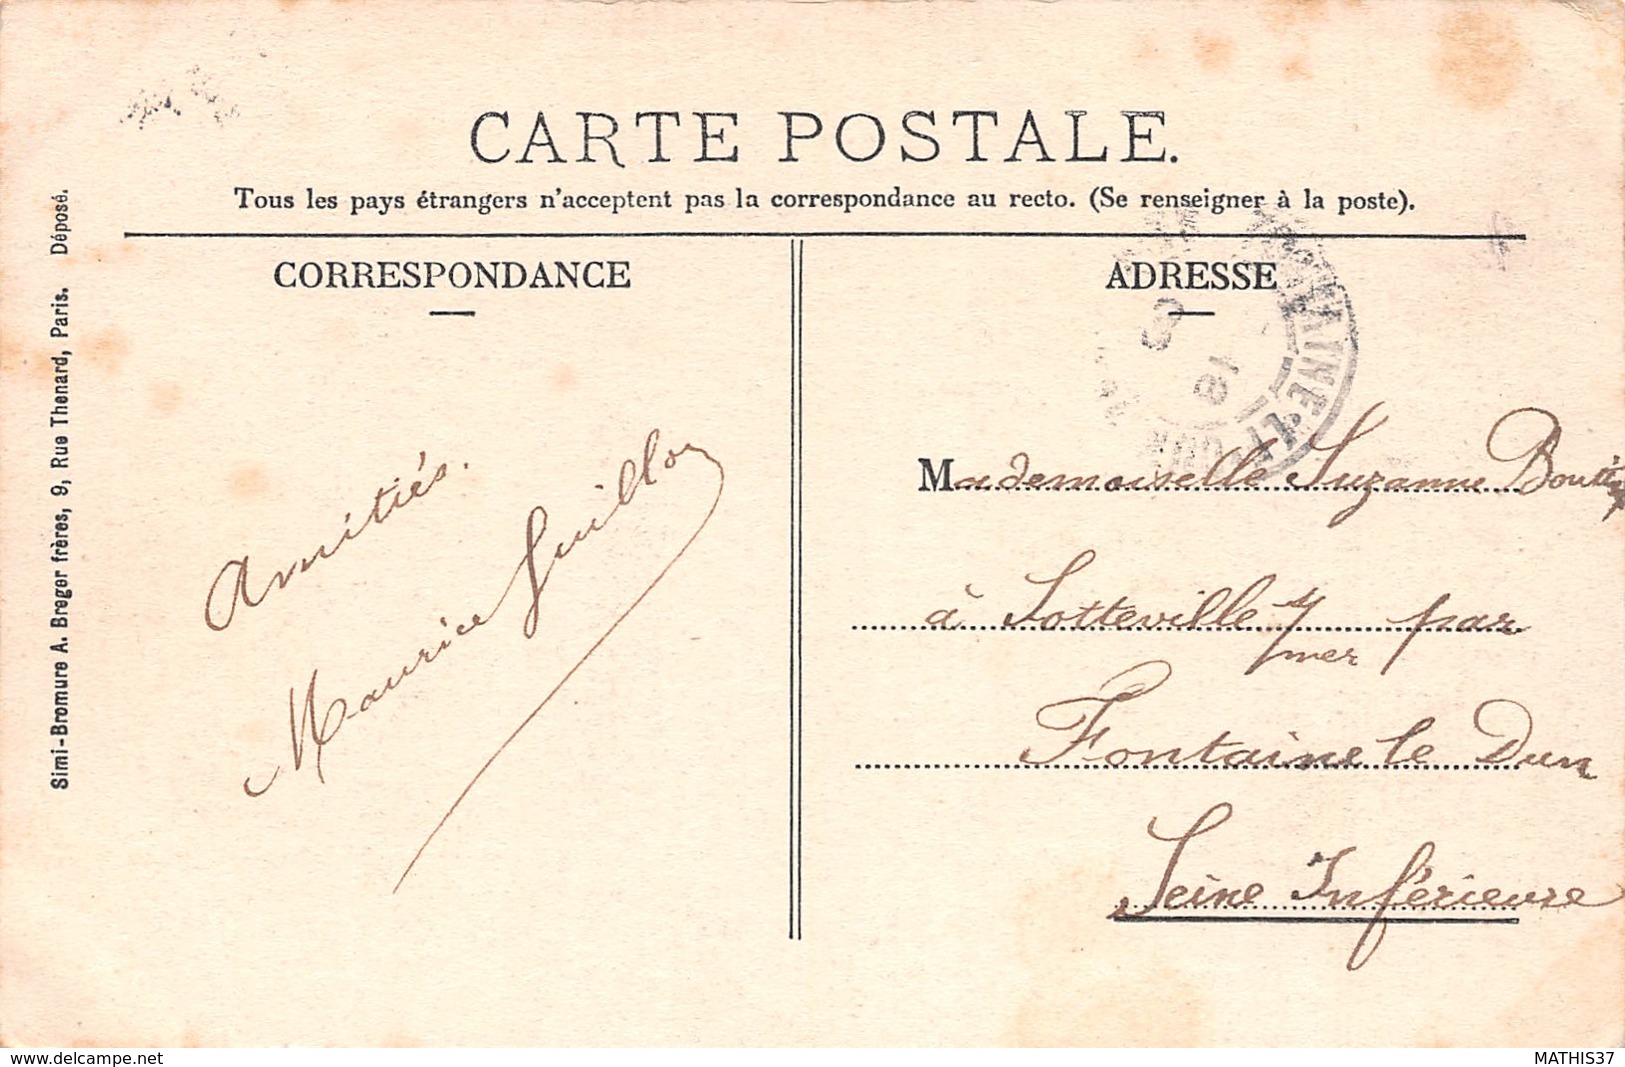 CARTE POSTALE.
Tous les pays étrangers n'acceptent pas la correspondance au recto. (Se renseigner à la poste).
CORRESPONDANCE
Amitiés.
Maurice Guillon
ADRESSE
Mademoiselle Suzanne
à Sotteville s/ mer par
Fontaine le Dun
Seine Inférieure
Simi-Bromure A. Breger frères, 9, Rue Thenard, Paris. Déposé.
www.delcampe.net
MATHIS37